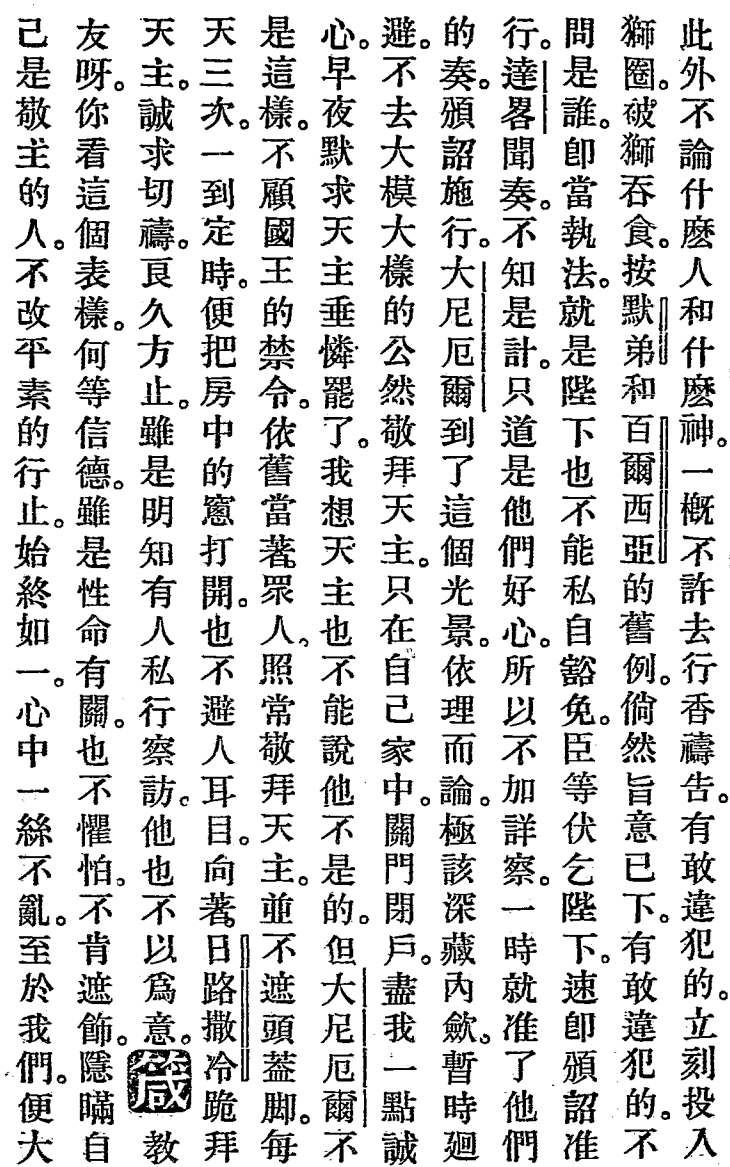 此外不論什麽人和什麽神。一概不許去行香禱告。有敢違犯的。立刻投入
獅圈。被獅吞食。按默弟和百爾西亞的舊例。倘然旨意已下。有敢違犯的。不
問是誰。卽當執法。就是陛下也不能私自豁免。臣等伏乞陛下。速卽頒詔准
行。達畧聞奏。不知是計。只道是他們好心。所以不加詳察。一時就准了他們
的奏。頒詔施行。大尼厄爾到了這個光景。依理而論。極該深藏內歛。暫時廻
避。不去大模大樣的公然敬拜天主。只在自己家中。關門閉戶。盡我一點誠
心。早夜默求天主垂憐罷了。我想天主也不能說他不是的。但大尼厄爾不
是這樣。不顧國王的禁令。依舊當著眾人、照常敬拜天主。並不遮頭蓋脚。每
天三次。一到定時。便把房中的窻打開。也不避人耳目。向著日路撒冷跪拜
天主。誠求切禱。良久方止。雖是明知有人私行察訪。他也不以爲意。箴教
友呀。你看這個表樣。何等信德。雖是性命有關。也不懼怕。不肯遮飾。隱瞞自
己是敬主的人。不改平素的行止。始終如一。心中一絲不亂。至於我們。便大